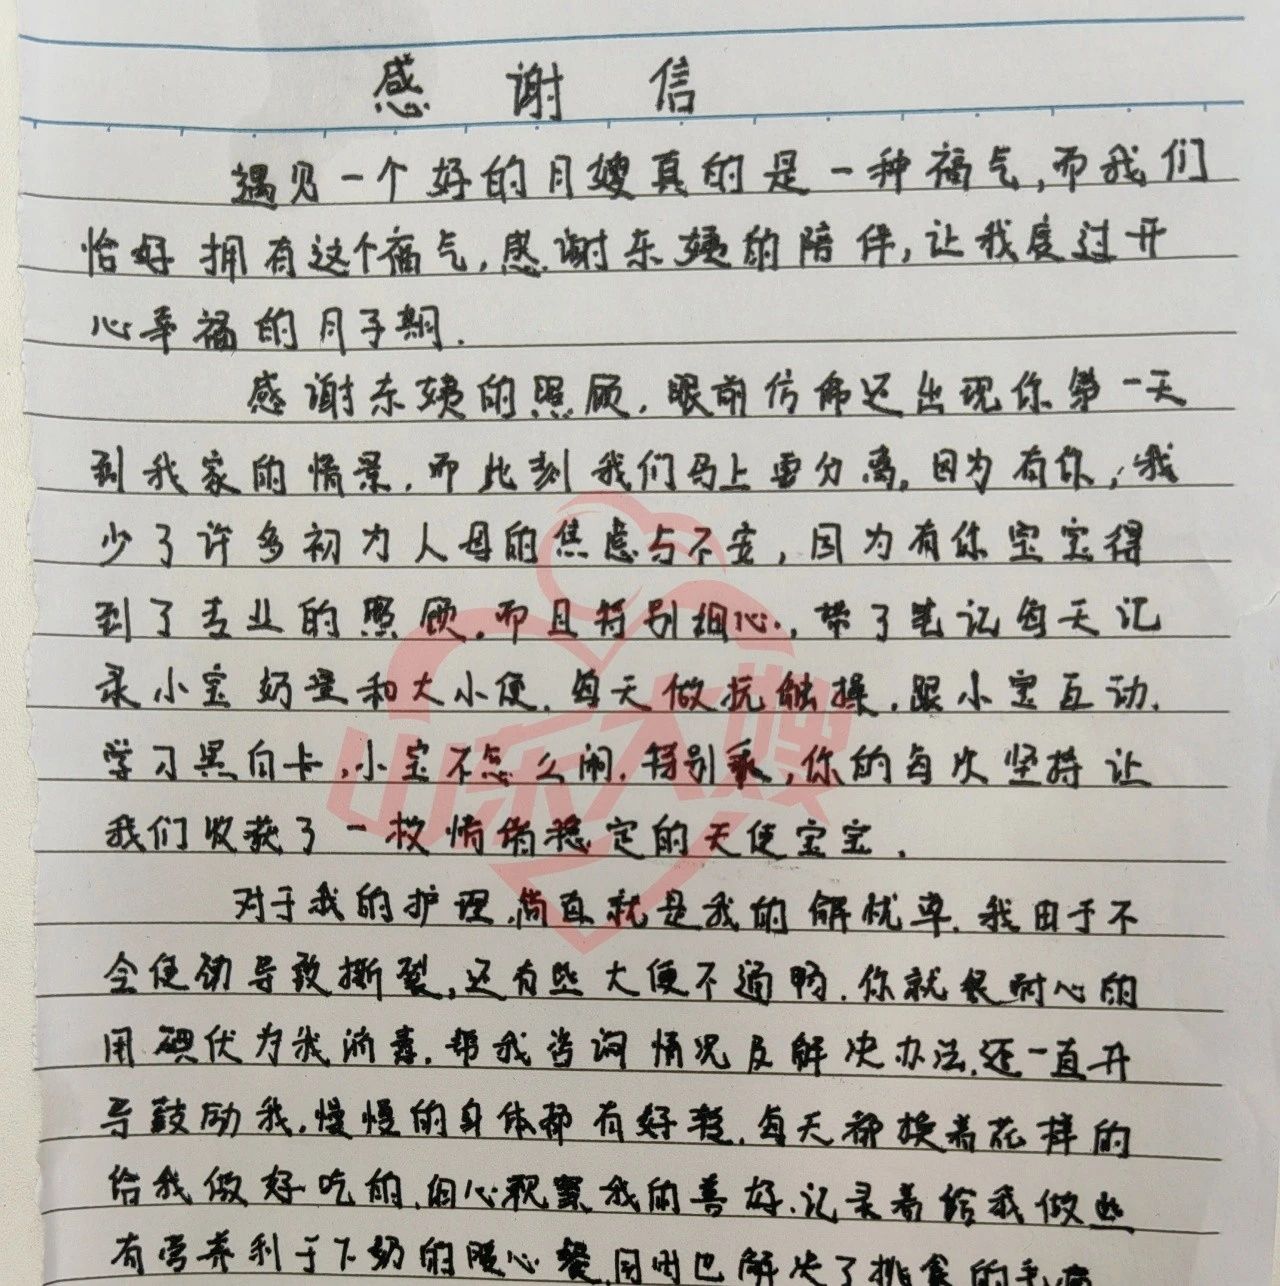 感谢信
遇见一个好的月嫂真的是一种福气,而我们
恰好拥有这个福气,感谢东姨的陪伴,让我度过开
心幸福的月子期.
感谢东姨的照顾,眼前仿佛还出现你第一天
到我家的情景,而此刻我们马上要分离,因为有你,我
少了许多初为人母的焦虑与不安,因为有你宝宝得
到了专业的照顾,而且特别细心,带了笔记每天记
录小宝奶量和大小便,每天做抚触操,跟小宝互动,
学习黑白卡,小宝不怎么闹,特别乖,你的每次坚持让
我们收获了一枚情绪稳定的天使宝宝.
对于我的护理,简直就是我的解忧草,我由于不
会使劲导致撕裂,还有些大便不通畅,你就很耐心的
用碘伏为我消毒,帮我咨询情况及解决办法,还一直开
导鼓励我,慢慢的身体都有好转,每天都换着花样的
给我做好吃的,细心观察我的喜好,记录着给我做些
有营养利于下奶的暖心餐,同时也解决了挑食的毛病
山东大嫂